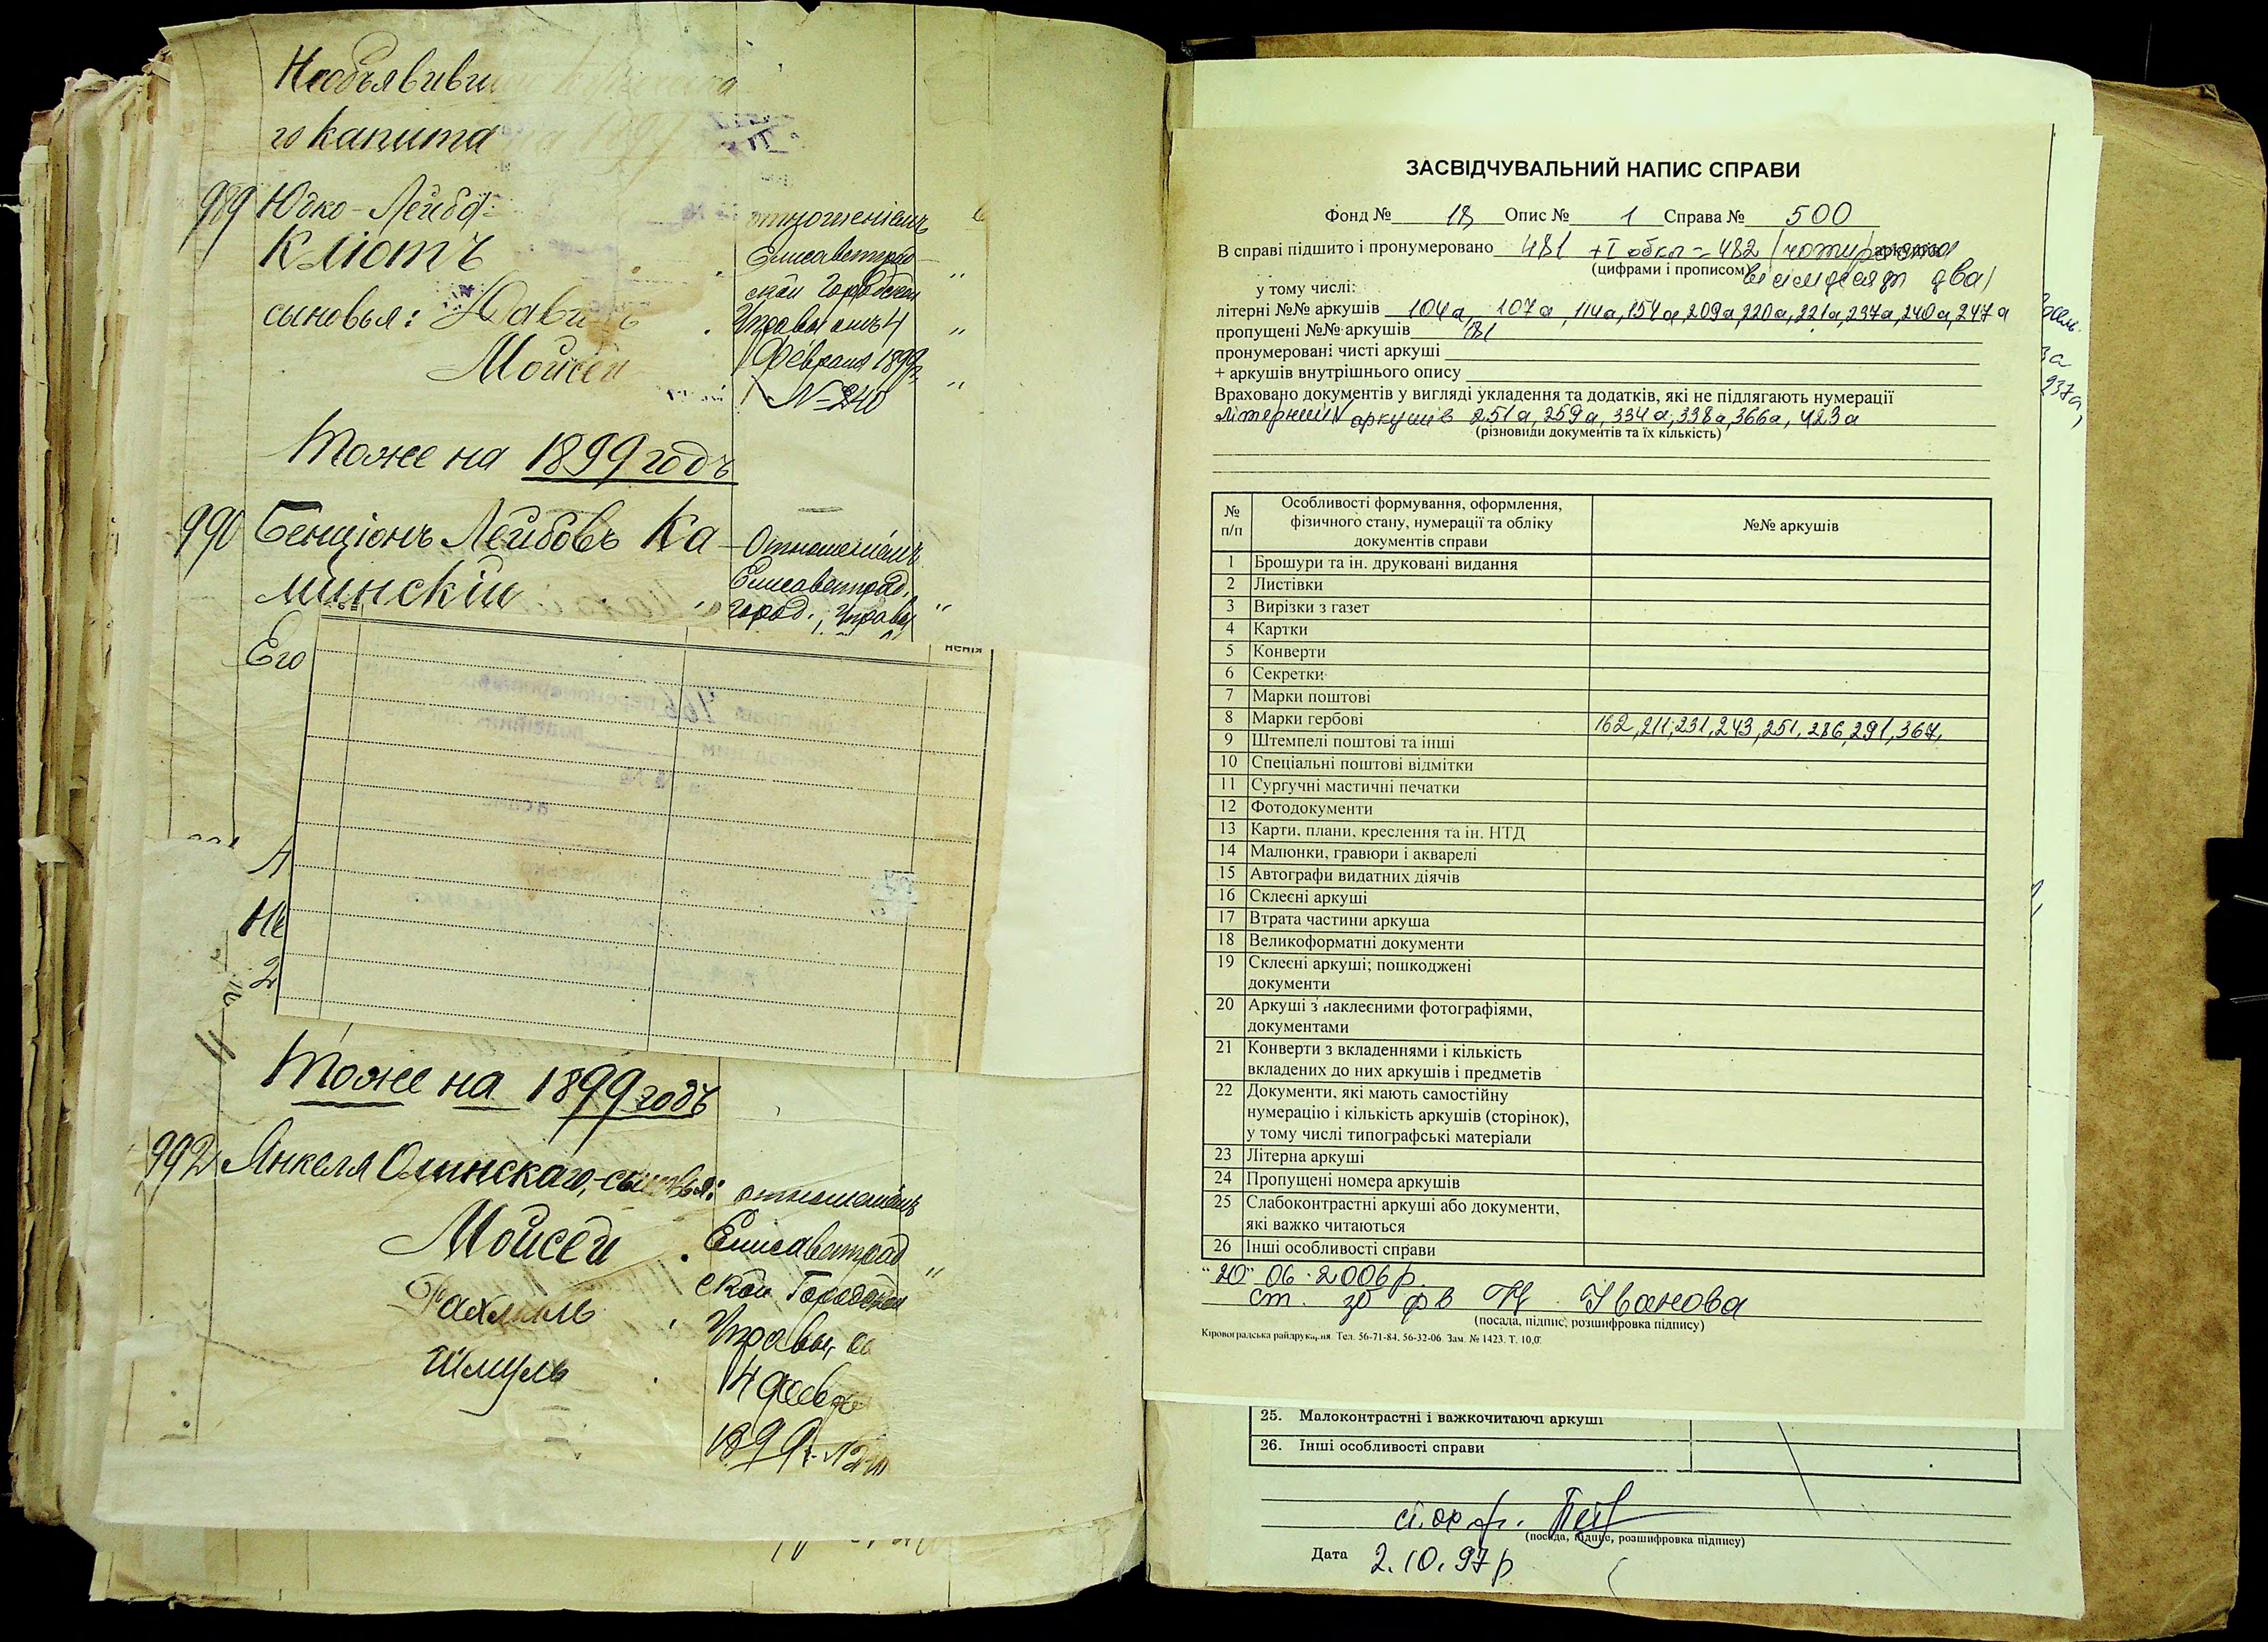 Необъявивш
го капита на 1899
989 Юдко-Лейба
Клютъ
сыновья: Давидъ
Мойсей
отношеніемъ
Елисаветград
ской Городской
Управы отъ 4
Февраля 1899 г.
№ 240
Тоже на 1899 годъ
990 Бенціонъ Лейбовъ Ка
минскій
Отношеніемъ
Елисаветград.
Город. Управы
Его
Не
2
Тоже на 1899 годъ
992 Янкеля Олинскаго, сыновья:
Мойсей
Рахмиль
Шмуль
отношеніемъ
Елисаветград
ской Городской
Управы,
4 Февр
1899 г.
ЗАСВІДЧУВАЛЬНИЙ НАПИС СПРАВИ
Фонд № 18 Опис № 1 Справа № 500
В справі підшито і пронумеровано 481 + I обкл = 482 (чотириста аркушів
(цифрами і прописом) вісімдесят два)
у тому числі:
літерні №№ аркушів 104а, 107а, 114а, 154а, 209а, 220а, 221а, 237а, 240а, 247а
пропущені №№ аркушів 181
пронумеровані чисті аркуші
+ аркушів внутрішнього опису
Враховано документів у вигляді укладення та додатків, які не підлягають нумерації
літерний № аркушів 251а, 259а, 334а, 338а, 366а, 423а
(різновиди документів та їх кількість)
№ п/п Особливості формування, оформлення, фізичного стану, нумерації та обліку документів справи №№ аркушів
1 Брошури та ін. друковані видання
2 Листівки
3 Вирізки з газет
4 Картки
5 Конверти
6 Секретки
7 Марки поштові
8 Марки гербові 162, 211, 231, 243, 251, 286, 291, 367,
9 Штемпелі поштові та інші
10 Спеціальні поштові відмітки
11 Сургучні мастичні печатки
12 Фотодокументи
13 Карти, плани, креслення та ін. НТД
14 Малюнки, гравюри і акварелі
15 Автографи видатних діячів
16 Склеєні аркуші
17 Втрата частини аркуша
18 Великоформатні документи
19 Склеєні аркуші; пошкоджені
документи
20 Аркуші з наклеєними фотографіями,
документами
21 Конверти з вкладеннями і кількість
вкладених до них аркушів і предметів
22 Документи, які мають самостійну
нумерацію і кількість аркушів (сторінок),
у тому числі типографські матеріали
23 Літерна аркуші
24 Пропущені номера аркушів
25 Слабоконтрастні аркуші або документи,
які важко читаються
26 Інші особливості справи
"20" 06. 2006 р.
ст. зб ф в Н Іванова
(посада, підпис, розшифровка підпису)
Кіровоградська райдрукарня. Тел. 56-71-84, 56-32-06. Зам. № 1423. Т. 10,0.
25. Малоконтрастні і важкочитаючі аркуші
26. Інші особливості справи
ст. ох. ф.
(посада, підпис, розшифровка підпису)
Дата 2.10.97 р